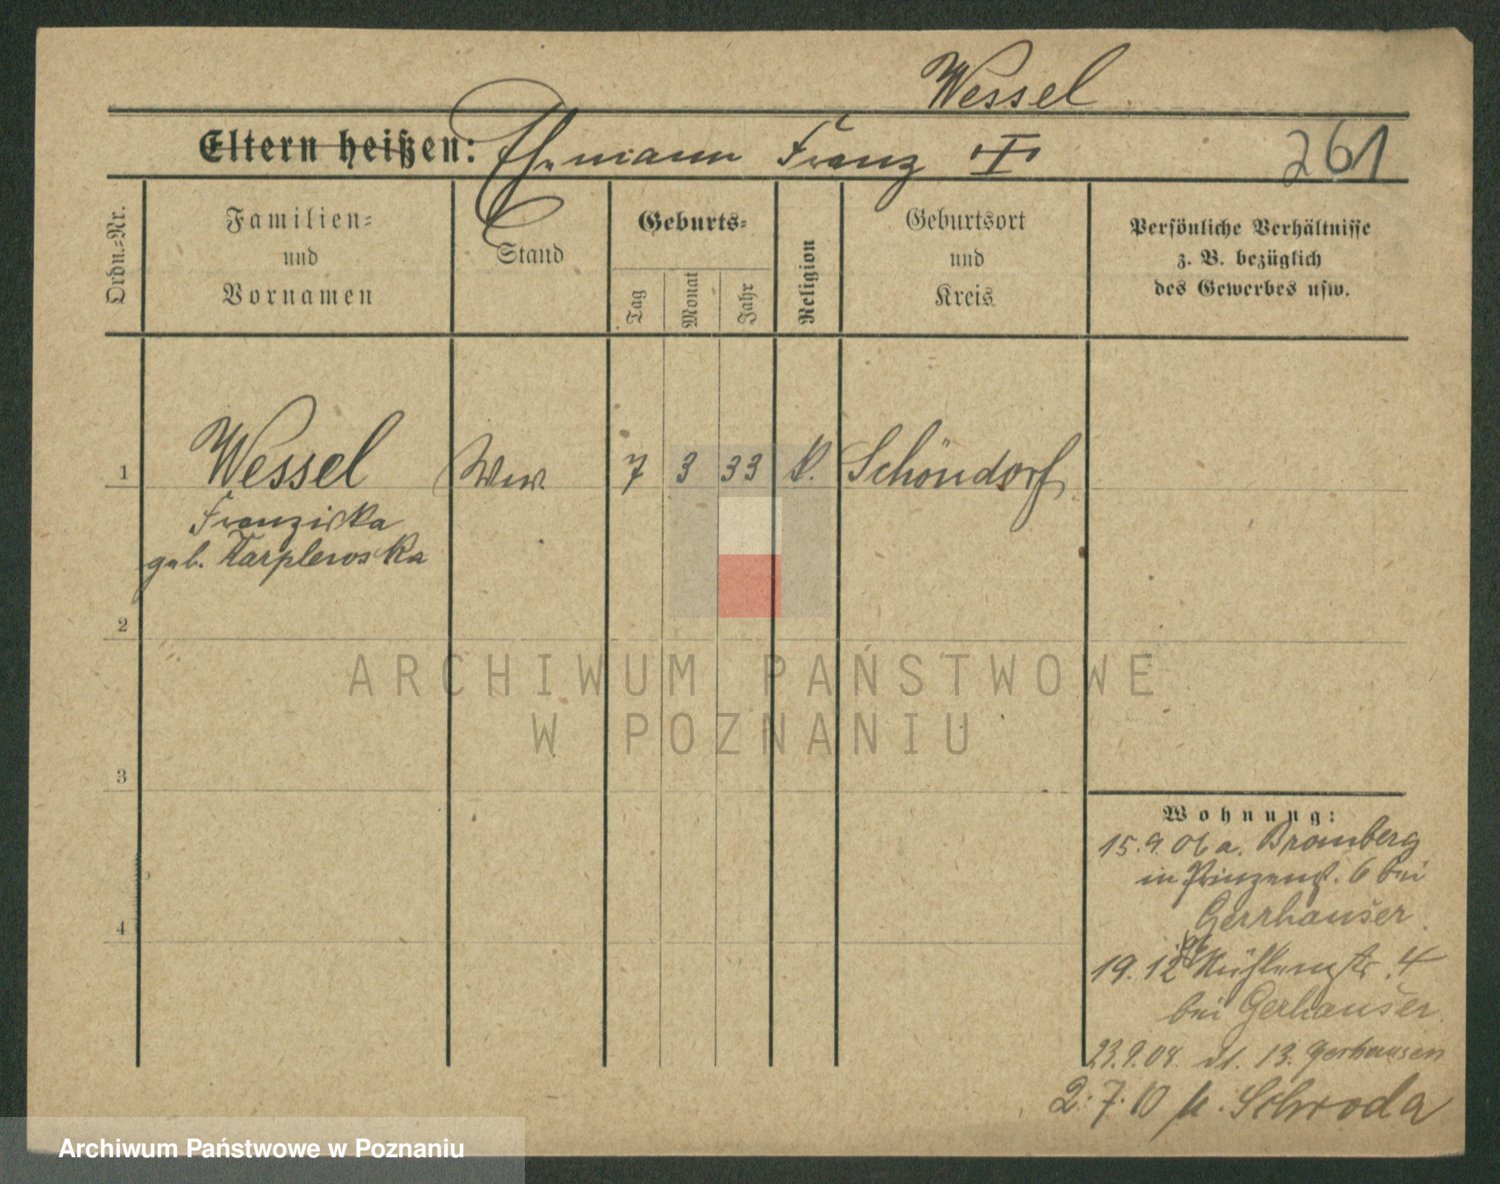 Wessel
Eltern heißen: Ehemann Franz
261
Ordn.=Nr.
Familien=
und
Vornamen
Stand
Geburts=
Tag
Monat
Jahr
Religion
Geburtsort
und
Kreis
Persönliche Verhältnisse
z. B. bezüglich
des Gewerbes usw.
1 Wessel Ww. 7 3 33 k. Schöndorf
Franziska
geb.
2
3
4
Wohnung:
15.9.06 a. Bromberg
in Prinzenst. 6 bei
Gerrhauser
19.12 4
bei Gerhauser
23.9.08 13. Gerhausen
2.7.10 n. Schroda
ARCHIWUM PAŃSTWOWE
W POZNANIU
Archiwum Państwowe w Poznaniu